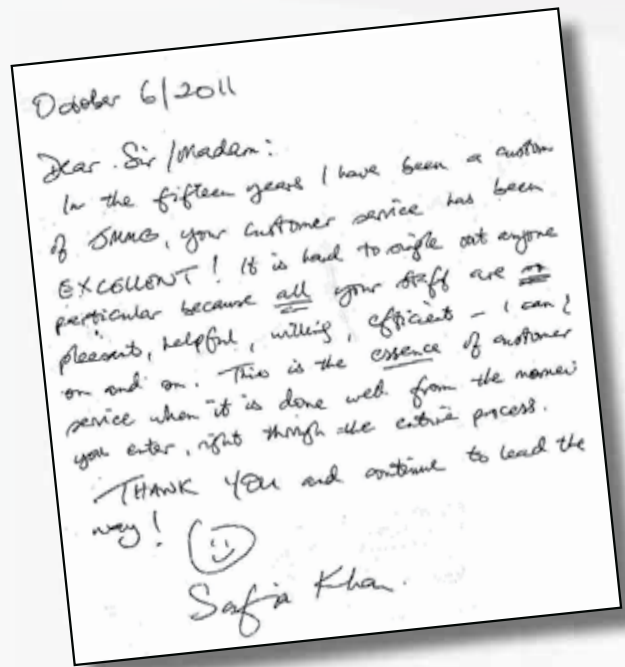 October 6/2011
Dear Sir/Madam:
In the fifteen years I have been a custom
of JMMB, your customer service has been
EXCELLENT! It is hard to single out anyone
particular because all your staff are
pleasant, helpful, willing, efficient – I can
on and on. This is the essence of customer
service when it is done well from the
you enter, right through the entire process.
THANK YOU and continue to lead the
way!
Safia Khan.